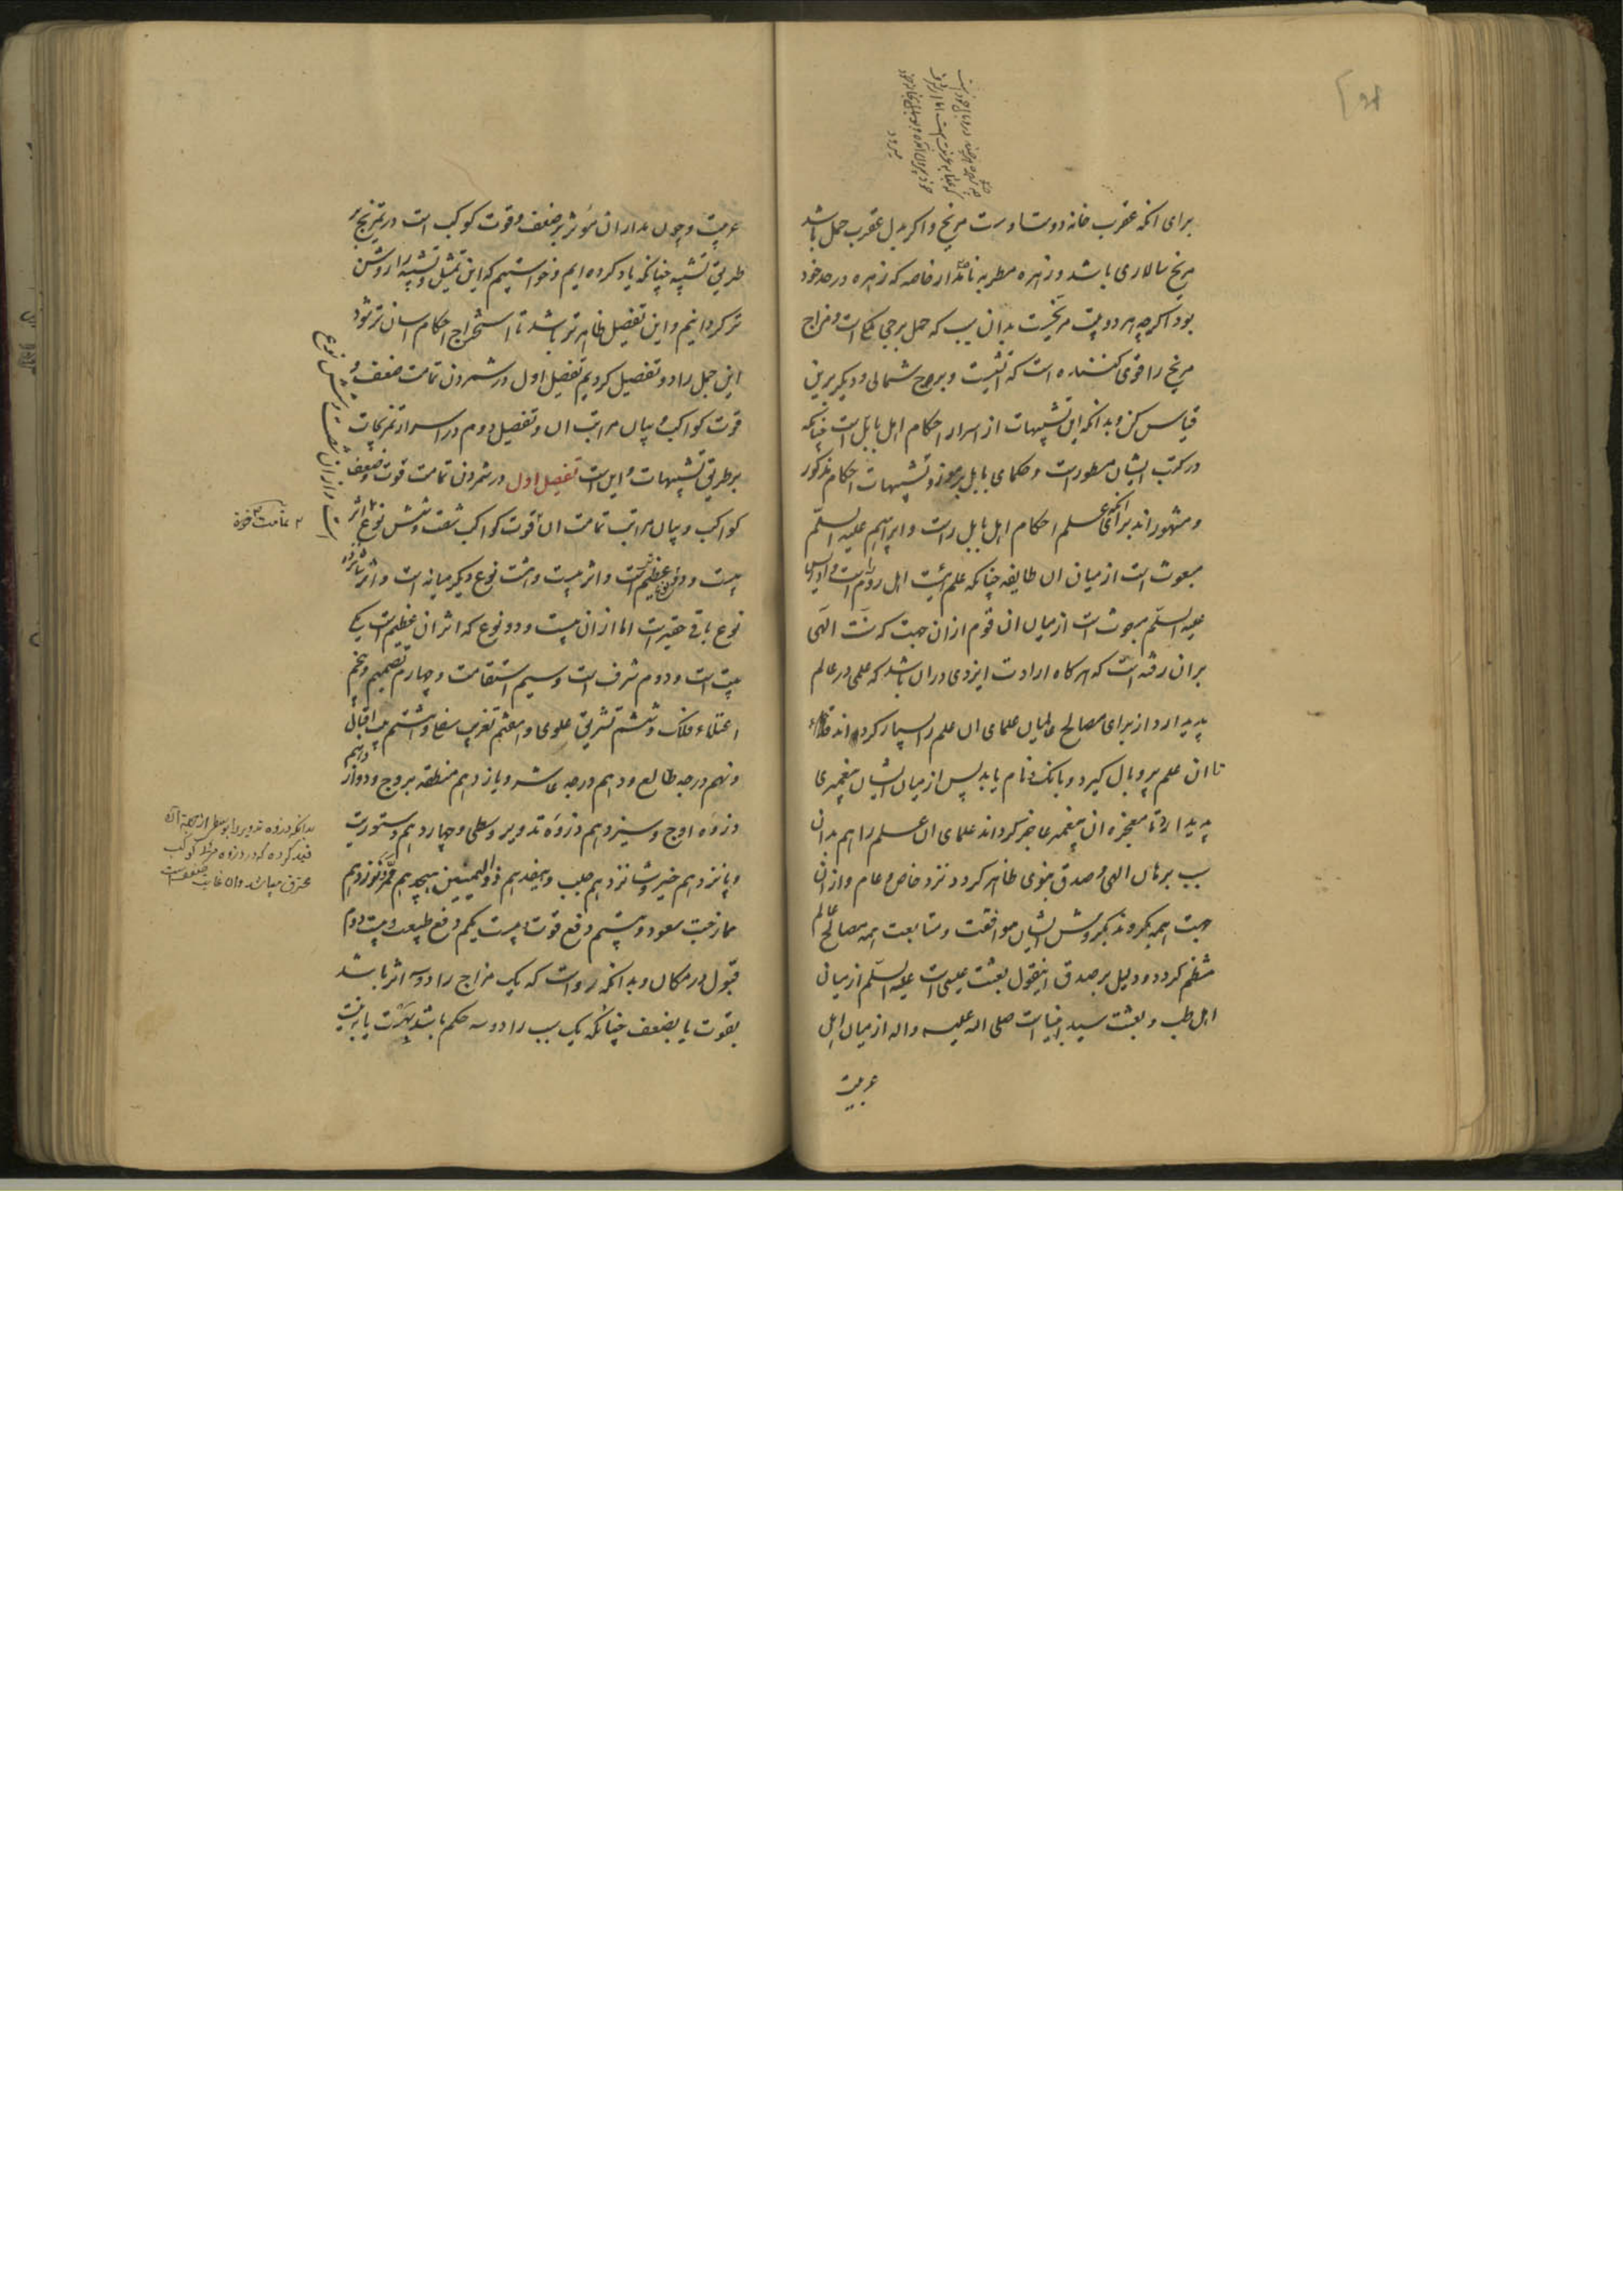 برای انکه عقرب خانه دوستاوست مریخ واکر بدل عقرب حمل باشد
مریخ سالاری باشد و زهره مطربه نامدار خاصه که زهره در حد خود
بود اکرچه هر دو بیت مریخست بدان سبب که حمل برجی است و مزاج
مریخ را قوی کننده است که اتشیست و برج شمالی و دیکر برین
قیاس کن و بدانکه این تشبیهات از اسرار احکام اهل بابل است چنانکه
در کتب ایشان مسطورست و حکمای بابل برموز و تشبیهات احکام مذکور
و مشهوراند برای انکه علم احکام اهل بابل راست و ابراهیم علیه السلم
مبعوث است از میان ان طایفه چنانکه علم هیئت اهل روم راست و ادریس
علیه السلم مبعوث است از میان ان قوم ازان جهت که سنت الهی
بران رفته است که هرکاه ارادت ایزدی دران باشد که علمی در عالم
پدید ارد از برای مصالح عالمیان علمای ان علم را بسیار کرداند
تا ان علم پر و بال کیرد و بانک و نام یابد پس از میان ایشان پیغمبری
پدید ارد تا معجزه ان پیغمبر عاجز کرداند علمای ان علم را هم بدان
سبب برهان الهی و صدق نبوی ظاهر کردد نزد خاص و عام و ازان
جهت همه بکروند بکروش ایشان موافقت و متابعت همه مصالح عالم
منظم کردد و دلیل بر صدق اینقول بعثت عیسی است علیه السلم از میان
اهل طب و بعثت سید انبیاست صلی اله علیه واله از میان اهل
عربیت
عربیت و چون مدار ان مؤثر بر ضعف و قوت کوکب است در تمزیج بر
طریق تشبیه چنانکه یاد کرده ایم و خواستیم که این تمثیل و تشبیه را روشن
تر کردانیم و این تفصیل ظاهرتر باشد تا استخراج احکام اسان تر شود
این جمل را دو تفصیل کردیم تفصیل اول در شمردن تمامت ضعف و
قوت کواکب و بیان مراتب ان و تفصیل دوم در اسرار تمزیجات
بر طریق تشبیهات و این است تفصیل اول در شمردن تمامت قوت و ضعف
کواکب و بیان مراتب تمامت ان قوت کواکب شصت و شش نوع
بیست و دو نوع عظیم است و اثر بیست و هشت نوع دیکر میانه است و اثر شانزده
نوع باقی حقیرست اما ازان بیست و دو نوع که اثر ان عظیم است یکی
بیت است و دوم شرف است و سیم استقامت و چهارم تصمیم و پنجم
اعتلاء فلک و ششم تشریق علوی و هفتم تغریب سفلی و هشتم بیت اقبالی
و نهم درجه طالع و دهم درجه عاشر و یازدهم منطقه بروج و دوازدهم
ذروه اوج و سیزدهم ذروه تدویر وسطی و چهاردهم دستوریت
و پانزدهم خیر و شانزدهم جلب و هفدهم ذو الیمینین هیجدهم نوزدهم
ممازجت سعود و بیستم دفع قوت بیست یکم دفع طبیعت و بیست دوم
قبول در مکان و بدانکه رواست که یک مزاج را دو سه اثر باشد
بقوت یا بضعف چنانکه یک سبب را دو سه حکم باشد